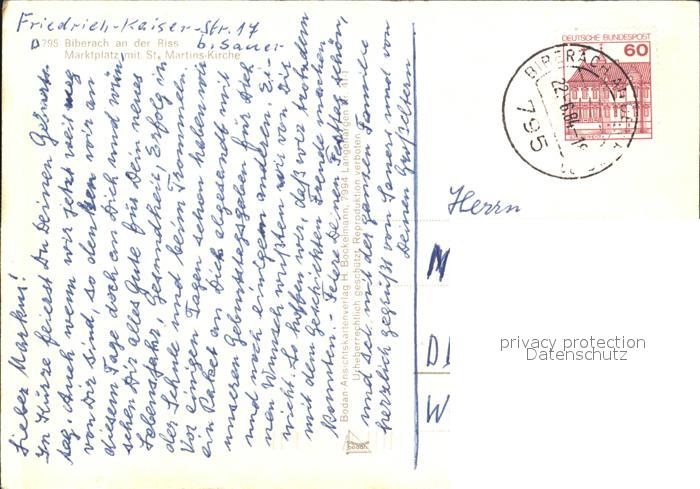 Friedrich-Kaiser-Str. 17
b. Sauer
D 795 Biberach an der Riss
Marktplatz mit St. Martins-Kirche
Lieber Markus!
In Kürze feierst Du Deinen Geburts-
tag. Auch wenn wir jetzt weit weg
von Dir sind, so denken wir an
diesem Tage doch an Dich und wün-
schen Dir alles Gute für Dein neues
Lebensjahr, Gesundheit, Erfolg in
der Schule und beim Trommeln.
Vor einigen Tagen schon haben wir
ein Paket an Dich abgesandt mit
unseren Geburtstagsgaben für Dich
und noch einigem anderen. Ei-
nen Wunsch wußten wir von Dir
nicht. So hoffen wir, daß wir trotzdem
mit dem Geschickten Freude machen
konnten. - Feiere Deinen Festtag schön,
und sei mit der ganzen Familie
herzlich gegrüßt von Sauers und von
Deinen Großeltern
Bodan-Ansichtskartenverlag H. Bockelmann, 7994 Langenargen
Urheberrechtlich geschützt, Reproduktion verboten
bodan
DEUTSCHE BUNDESPOST
60
BIBERACH AN DER
22.6.84-18
795
Herrn
M
D
W
privacy protection
Datenschutz